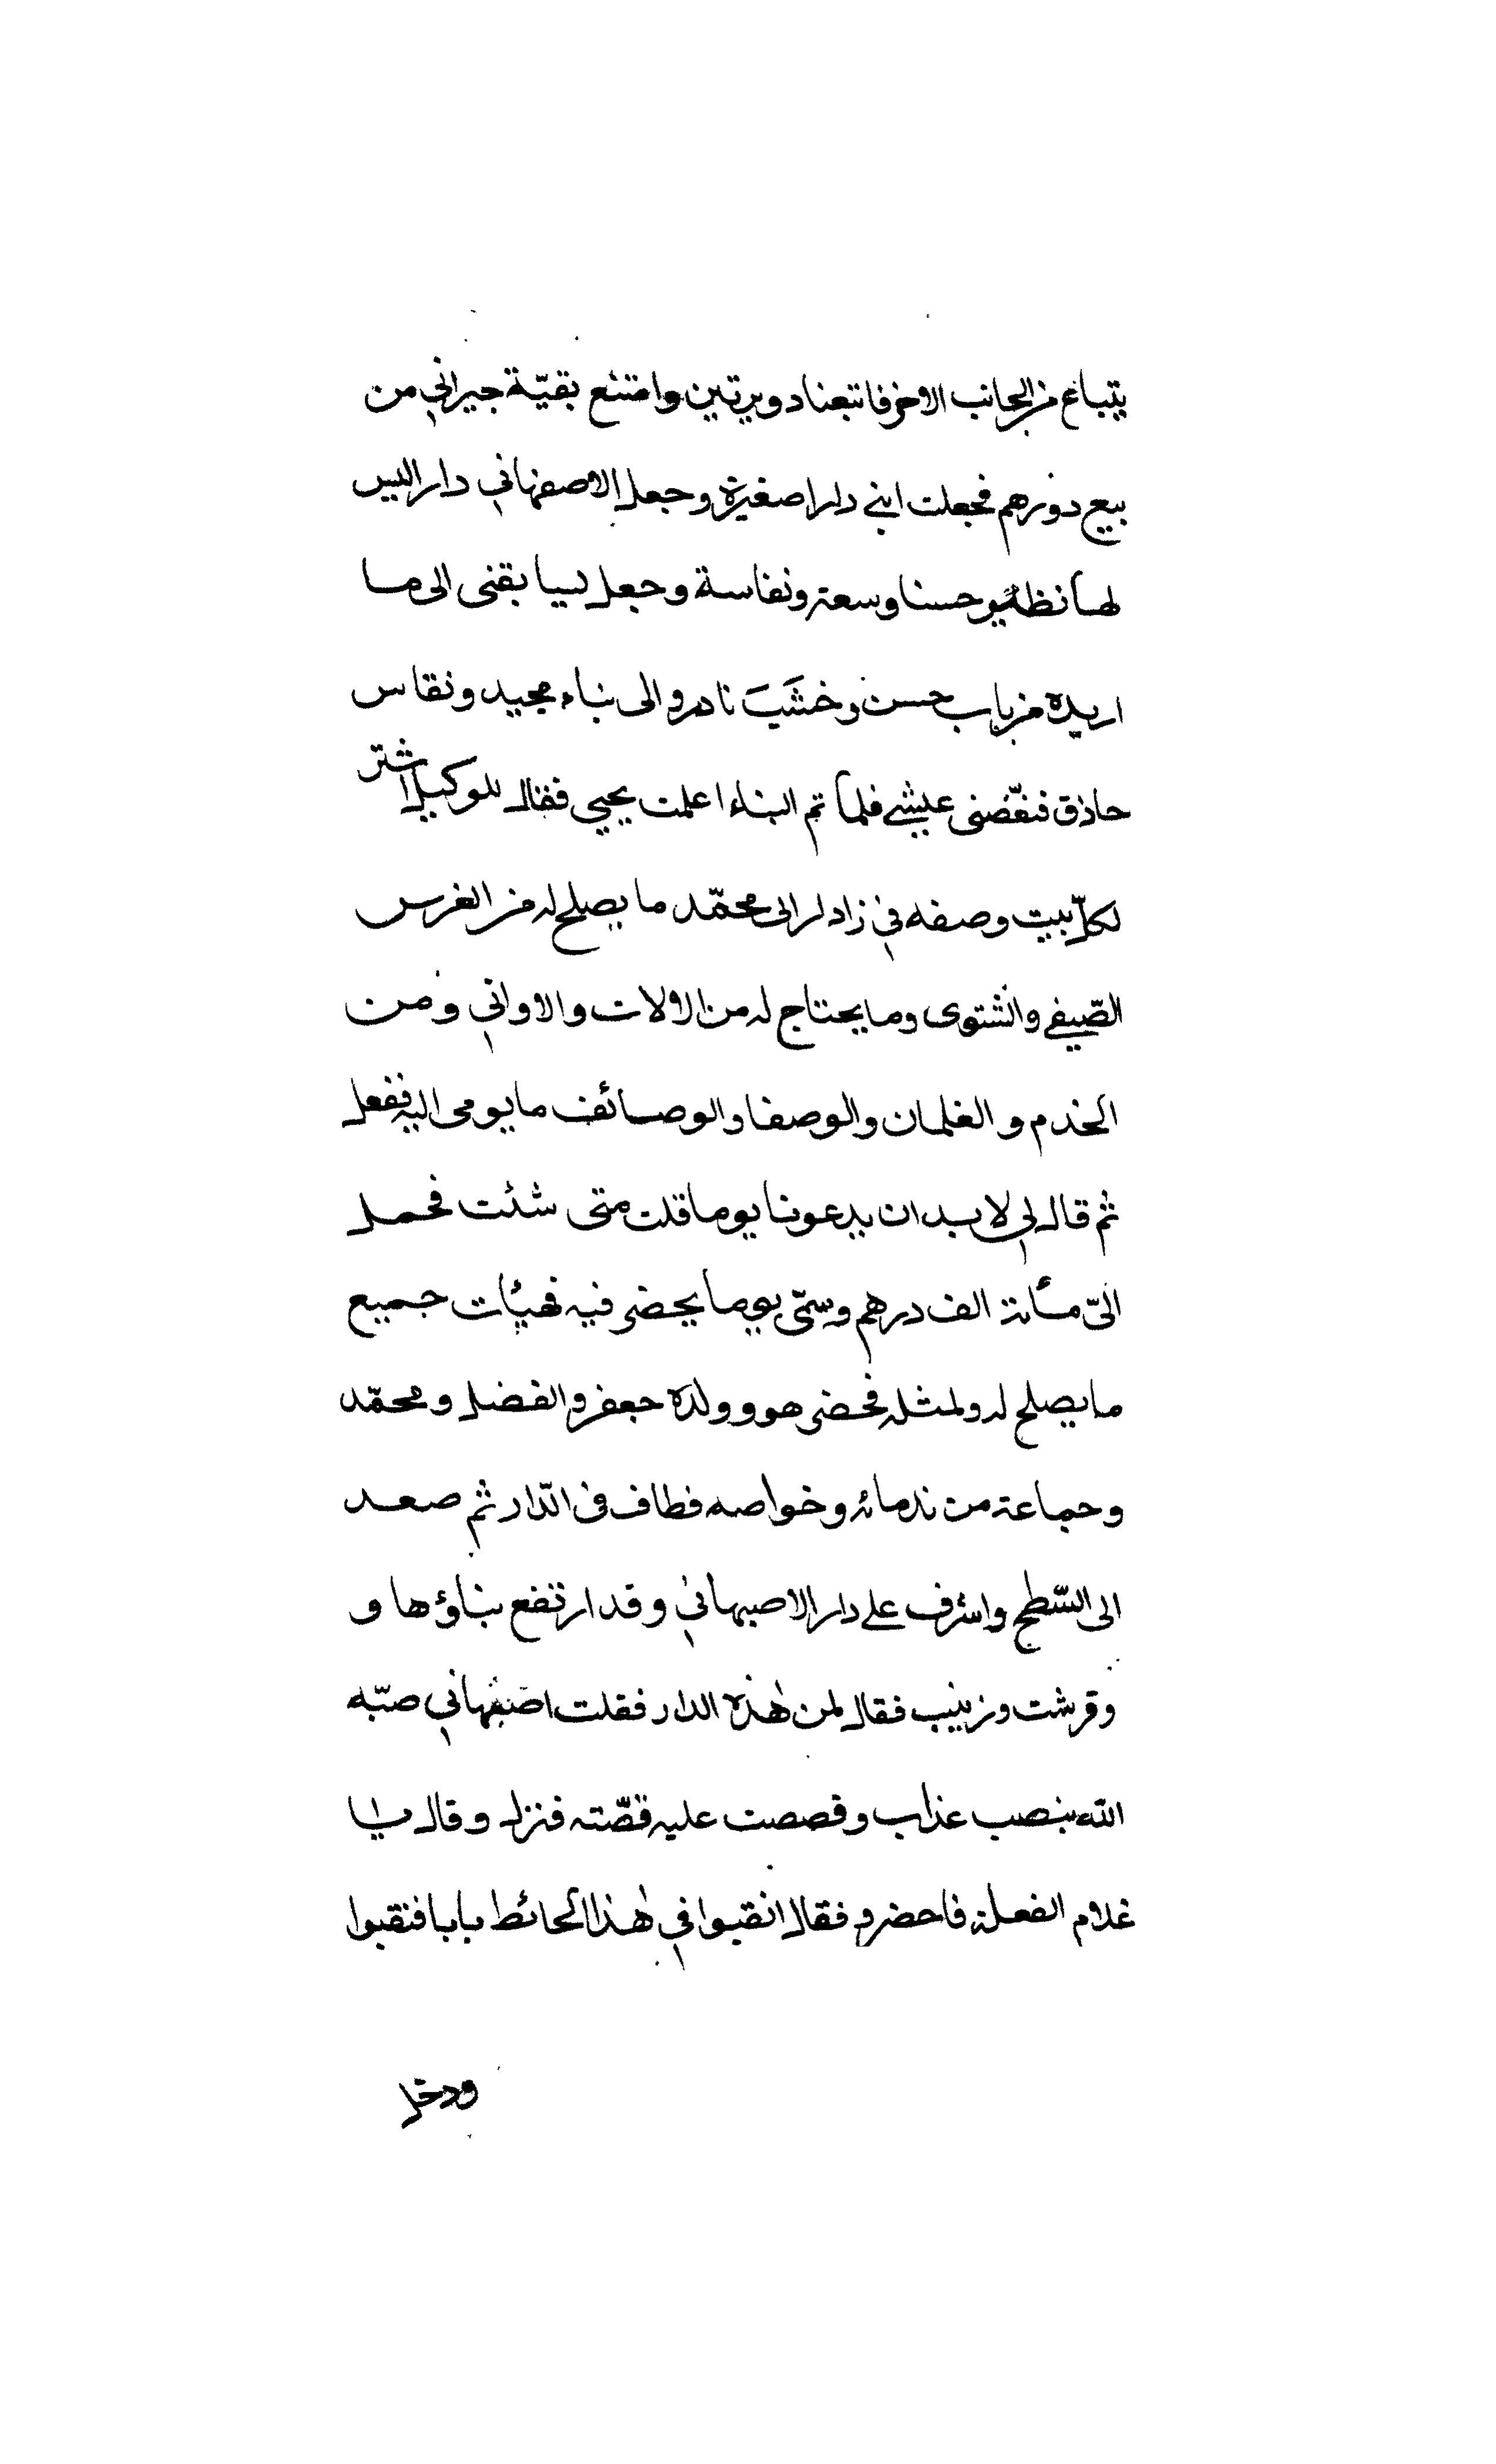 يتباع من الجانب الاخر فاتبعنا دويرتين وامتنع بقيّة جيراني من
بيع دورهم فجعلت ابني دارا صغيرة وجعل الاصفهاني دار اليس
لها نظير حسنا وسعة ونفاسة وجعل ليسا بقنى الى ما
اريده من باب حسن وخشب نادر والى بناء مجيد ونقاس
حاذق فنغّصنى عيشي فلما تم البناء اعلمت يحيى فقال للوكيل اشتر
لكلّ بيت وصفه في زاد لر الى محمّد ما يصلح له من الغرس
الصّيفي والشتوى وما يحتاج له من الالات والاواني ومن
الخدم و الغلمان والوصفا والوصائف ما يومى اليه ففعل
ثم قال لي لا بد ان يدعونا يوما قلت متى شئت فحمل
الىّ مأئة الف درهم وسمّى يوما يحضر فيه فهيأت جميع
ما يصلح له ولمثله فحضر هو وولده جعفر والفضل ومحمّد
وجماعة من ندمائه وخواصه فطاف فى الدّار ثم صعد
الى السّطح واشرف على دار الاصبهاني وقد ارتفع بناؤها و
وقرشت وزينب فقال لمن هذه الدار فقلت اصفهاني صبّه
الله بنصب عذاب وقصصت عليه قصّته فنزل وقال يا
غلام الفعلة فاحضرو فقال انقبوا في هذا الحائط بابا فنقبوا
ودخل